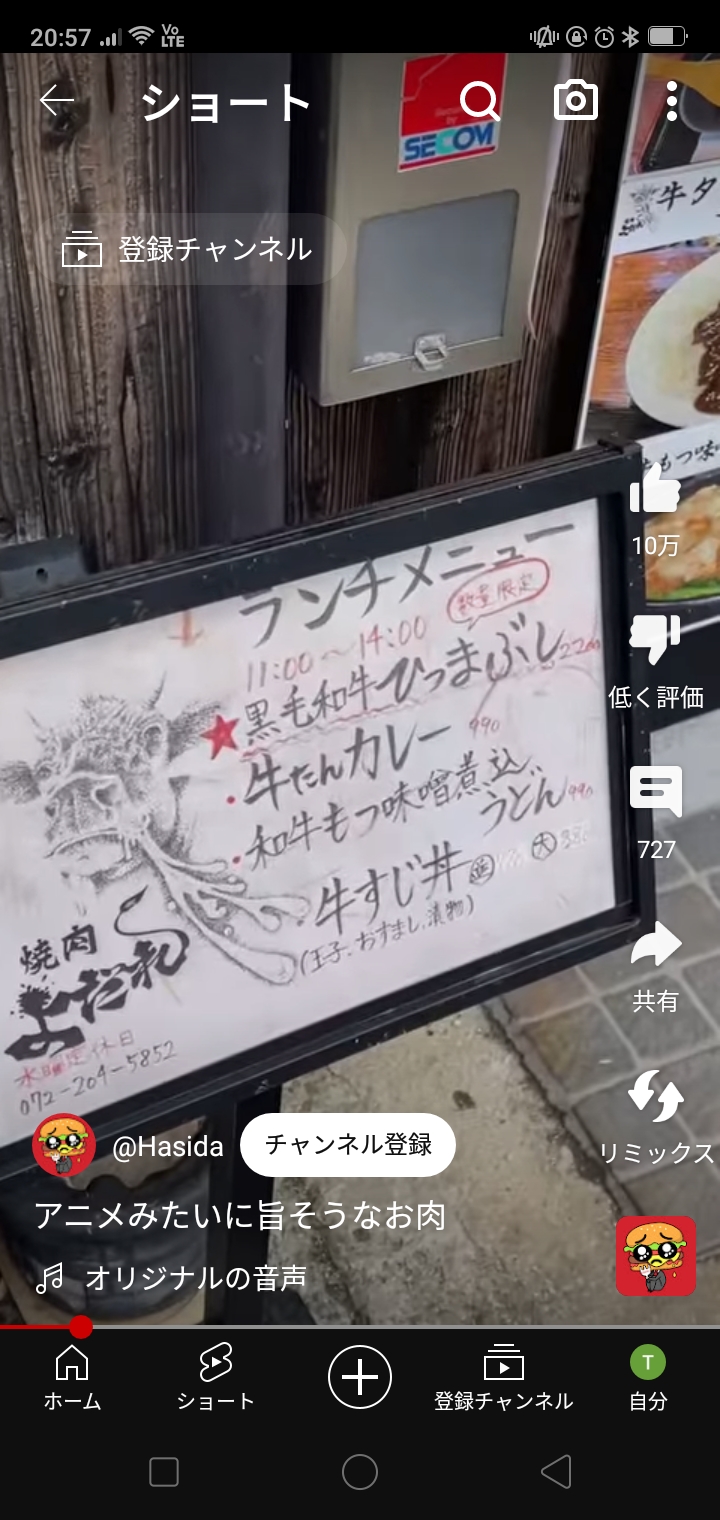 20:57
Vo
LTE
ショート
SECOM
牛タ
登録チャンネル
もつ味
10万
低く評価
727
共有
リミックス
ランチメニュー
数量限定
11:00〜14:00
★黒毛和牛ひつまぶし
・牛たんカレー 990
・和牛もつ味噌煮込
うどん 990
・牛すじ丼 並 大
(玉子、おすまし、漬物)
焼肉
よだれ
水曜定休日
072-204-5852
@Hasida
チャンネル登録
アニメみたいに旨そうなお肉
オリジナルの音声
ホーム
ショート
登録チャンネル
T
自分